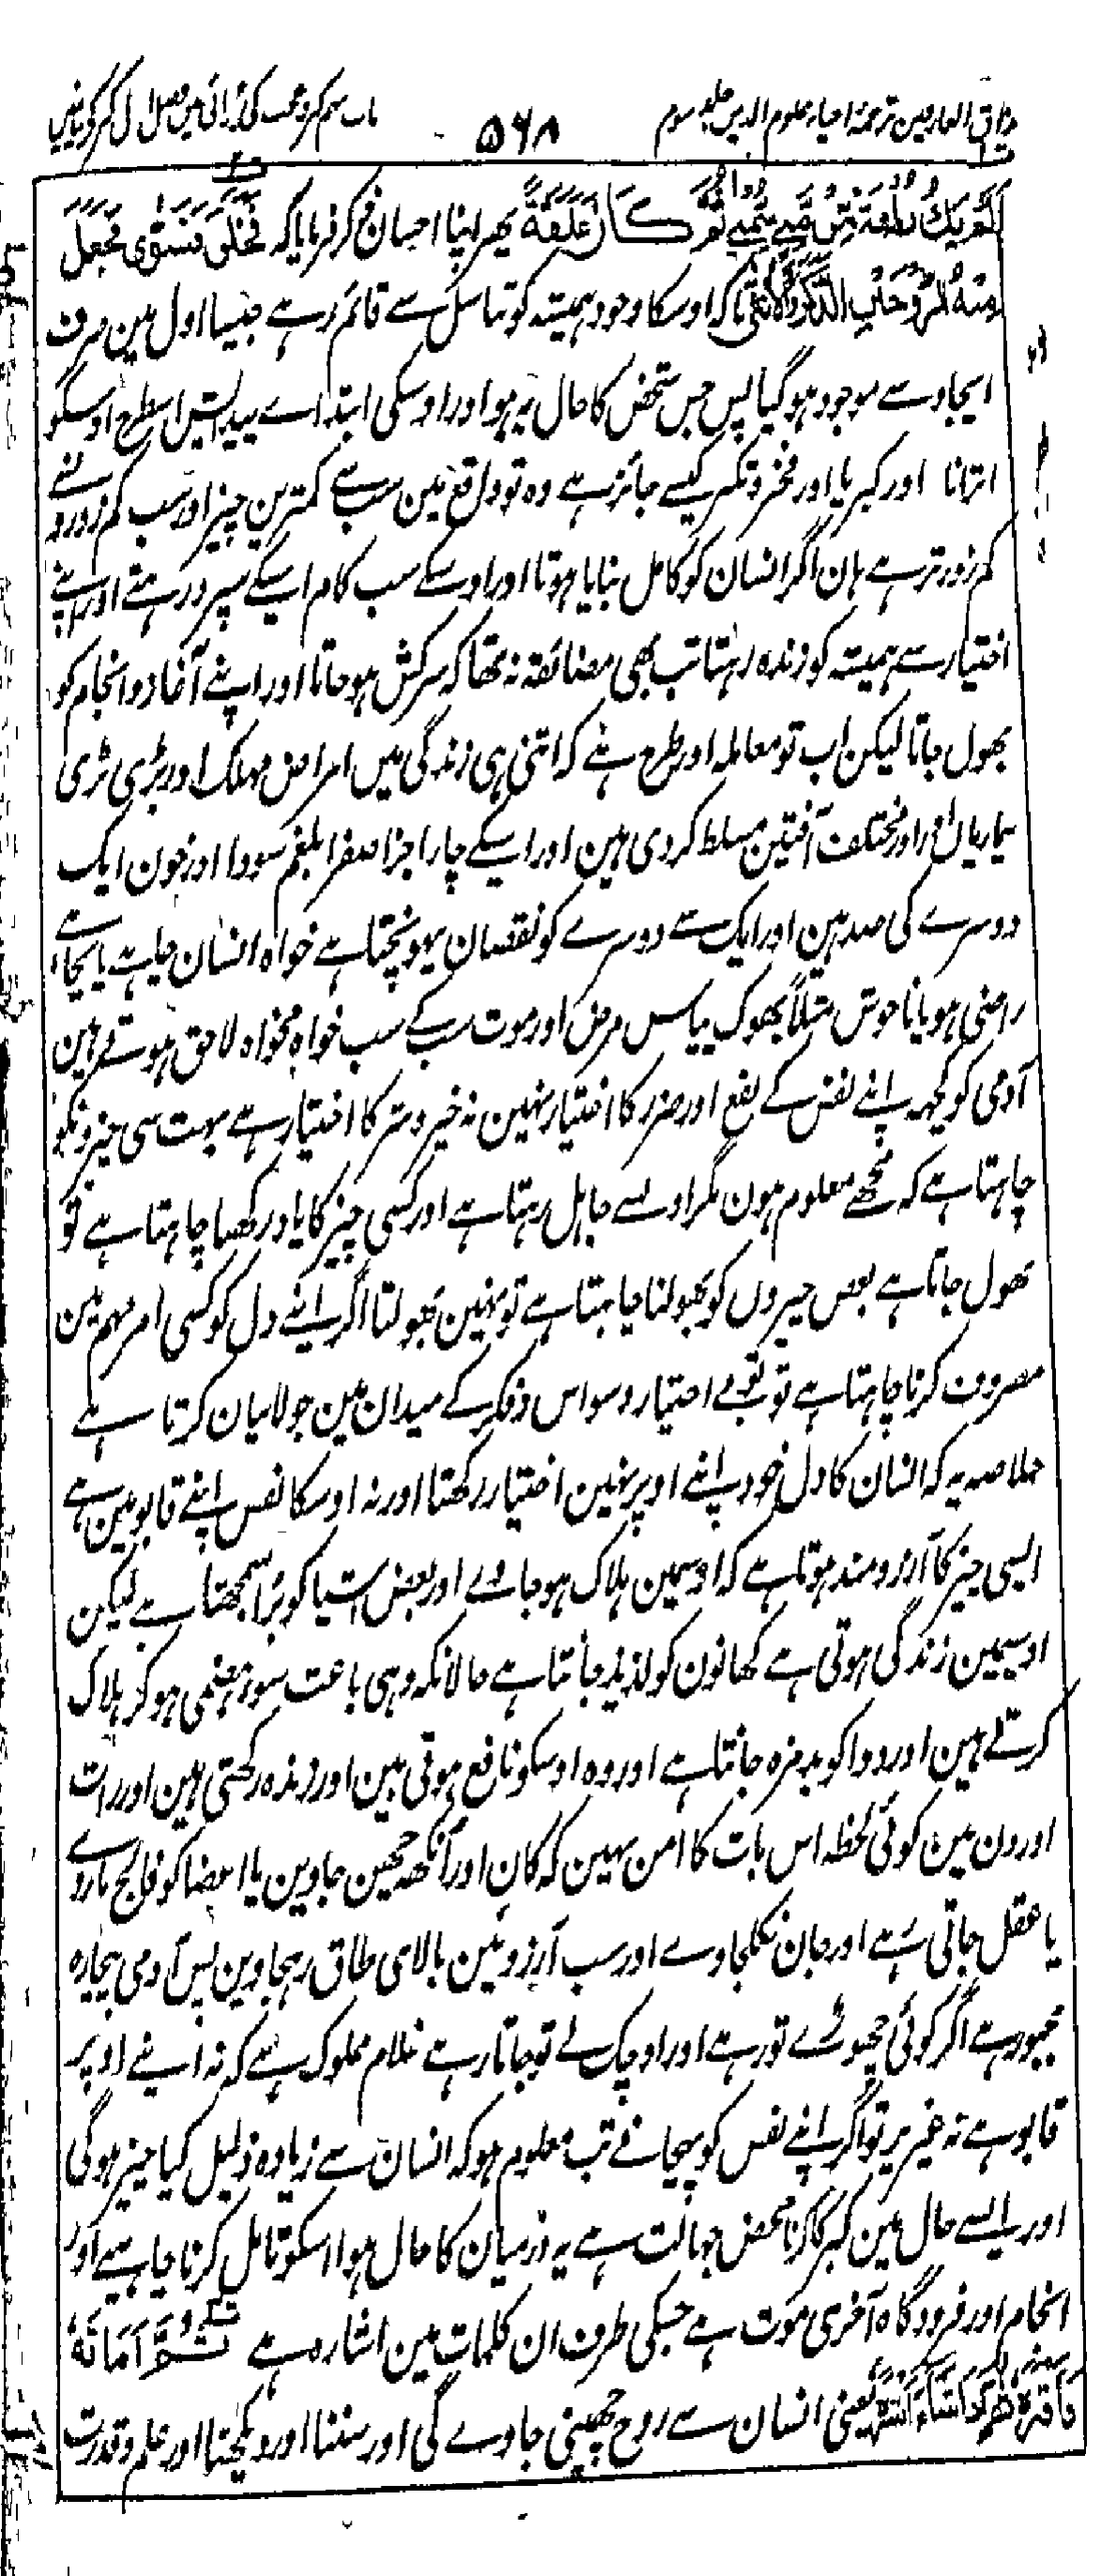 مذاق العارفین ترجمۂ احیاء علوم الدین جلد سوم
۵۶۸
باب
اَلَمْ يَكُ نُطْفَةً مِّنْ مَّنِيٍّ يُّمْنٰى ثُمَّ كَانَ عَلَقَةً پھر اپنا احسان فرمایا کہ فَخَلَقَ فَسَوّٰى فَجَعَلَ
مِنْهُ الزَّوْجَيْنِ الذَّكَرَ وَالْاُنْثٰى تاکہ اوسکا وجود ہمیشہ کو تناسل سے قائم رہے جیسا اول مین صرف
ایجاد سے موجود ہو گیا پس جس شخص کا حال یہ ہو اور اوسکی ابتداے پیدایش اسطرح اوسکو
اترانا اور کبریا اور فخر و تکبر کیسے جائز ہے وہ تو واقع مین سب سے کمترین چیز اور سب کمزورونسے
کمزور تر ہے ہان اگر انسان کو کامل بنایا ہوتا اور اوسکے سب کام اسیکے سپرد رہتے اور اپنے
اختیار سے ہمیشہ کو زندہ رہتا تب بھی مضائقہ نہ تھا کہ سرکش ہو جاتا اور اپنے آغاز و انجام کو
بھول جاتا لیکن اب تو معاملہ اور طرح ہے کہ اتنی ہی زندگی میں امراض مہلک اور بڑی بڑی
بیماریاں اور مختلف آفتین مسلط کر دی ہین اور اسکے چار اجزا صفرا بلغم سودا اور خون ایک
دوسرے کی ضد ہین اور ایک سے دوسرے کو نقصان پہونچتا ہے خواہ انسان چاہے یا نچاہے
راضی ہو یا ناخوش مثلاً بھوک پیاس مرض اور موت سب کے سب خواہ مخواہ لاحق ہوتے ہین
آدمی کو کچہہ اپنے نفس کے نفع اور ضرر کا اختیار نہین نہ خیر و شر کا اختیار ہے بہت سی چیزونکو
چاہتا ہے کہ مجھے معلوم ہون مگر اونسے جاہل رہتا ہے اور کسی چیز کا یاد رکھنا چاہتا ہے تو
بھول جاتا ہے بعض چیزوں کو بھولنا چاہتا ہے تو نہین بھولتا اگر اپنے دل کو کسی امر مہم مین
مصروف کرنا چاہتا ہے تو بے اختیار وسواس و فکر کے میدان مین جولانیان کرتا ہے
خلاصہ یہ کہ انسان کا دل خود اپنے اوپر نہین اختیار رکھتا اور نہ اوسکا نفس اپنے قابو مین ہے
ایسی چیز کا آرزومند ہوتا ہے کہ اوسمین ہلاک ہو جاوے اور بعض اشیا کو بُرا سمجھتا ہے لیکن
اوسیمین زندگی ہوتی ہے کھانون کو لذیذ جانتا ہے حالانکہ وہی باعث سوء ہضمی ہو کر ہلاک
کرتے ہین اور دوا کو بدمزہ جانتا ہے اور وہ اوسکو نافع ہوتی ہین اور زندہ رکھتی ہین اور رات
اور دن مین کوئی لحظہ اس بات کا امن نہین کہ کان اور آنکھ چھن جاوین یا اعضا کو فالج ماردے
یا عقل جاتی رہے اور جان نکلجاوے اور سب آرزوئین بالای طاق رہجاوین پس آدمی بیچارہ
مجبور ہے اگر کوئی چھوڑے تو رہے اور اوچک لے تو جاتا رہے غلام مملوک ہے کہ نہ اپنے اوپر
قابو ہے نہ غیر پر تو اگر اپنے نفس کو پہچانے تب معلوم ہو کہ انسان سے زیادہ ذلیل کیا چیز ہوگی
اور ایسے حال مین کبر کرنا محض جہالت ہے یہ درمیان کا حال ہوا اسکو تامل کرنا چاہیے اور
انجام اور فرودگاہ آخری موت ہے جسکی طرف ان کلمات مین اشارہ ہے ثُمَّ اَمَاتَهٗ
فَاَقْبَرَهٗ ثُمَّ اِذَا شَآءَ اَنْشَرَهٗ یعنی انسان سے روح چھینی جاوے گی اور سننا اور دیکھنا اور علم و قدرت